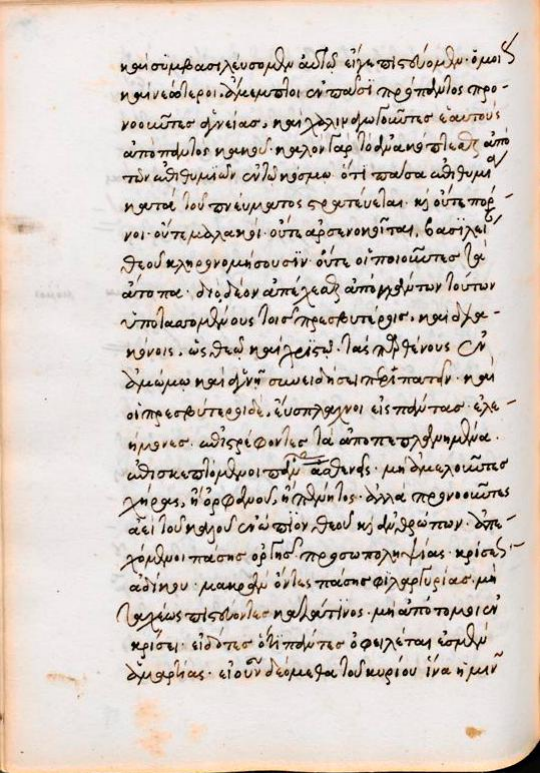 καὶ συμβασιλεύσομεν αὐτῷ εἴγε πιστεύομεν· ὁμοί
καὶ νεώτεροι ἄμεμπτοι ἐν πᾶσι πρὸ παντὸς προ-
νοοῦντες ἁγνείας, καὶ χαλιναγωγοῦντες ἑαυτοὺς
ἀπὸ παντὸς κακοῦ· καλὸν γὰρ τὸ ἀνακόπτεσθαι ἀπὸ
τῶν ἐπιθυμιῶν ἐν τῷ κόσμῳ ὅτι πᾶσα ἐπιθυμία
κατὰ τοῦ πνεύματος στρατεύεται· καὶ οὔτε πόρ-
νοι· οὔτε μαλακοί· οὔτε ἀρσενοκοῖται, βασιλεί
θεοῦ κληρονομήσουσιν· οὔτε οἱ ποιοῦντες τὰ
ἄτοπα· διὸ δέον ἀπέχεσθαι ἀπὸ πάντων τούτων
ὑποτασσομένους τοῖς πρεσβυτέροις, καὶ δια-
κόνοις, ὡς θεῷ καὶ χριστῷ. τὰς παρθένους ἐν
ἀμώμῳ καὶ ἁγνῇ συνειδήσει περιπατεῖν· καὶ
οἱ πρεσβύτεροι δέ, εὔσπλαγχνοι εἰς πάντας· ἐλε-
ήμονες· ἐπιστρέφοντες τὰ ἀποπεπλανημένα·
ἐπισκεπτόμενοι πάντας ἀσθενεῖς· μὴ ἀμελοῦντες
χήρας, ἢ ὀρφανοῦ, ἢ πένητος· ἀλλὰ προνοοῦντες
ἀεὶ τοῦ καλοῦ ἐνώπιον, θεοῦ καὶ ἀνθρώπων· ἀπε-
χόμενοι πάσης ὀργῆς προσωποληψίας· κρίσεως
ἀδίκου· μακρὰν ὄντες πάσης φιλαργυρίας· μὴ
ταχέως πιστεύοντες κατά τινος· μὴ ἀπότομοι ἐν
κρίσει· εἰδότες ὅτι πάντες ὀφειλέται ἐσμὲν
ἁμαρτίας· εἰ οὖν δεόμεθα τοῦ κυρίου ἵνα ἡμῖν